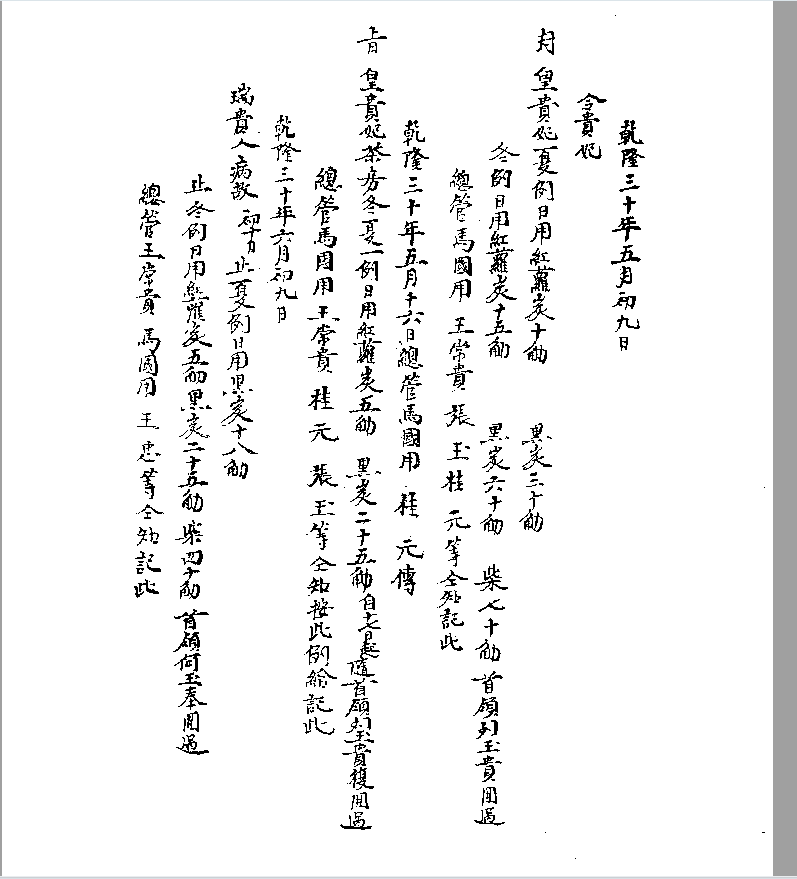 乾隆三十年五月初九日
令貴妃
封 皇貴妃夏例日用紅蘿炭十觔 黑炭三十觔
冬例日用紅蘿炭十五觔 黑炭六十觔 柴七十觔 首領刘玉貴開過
總管馬國用 王常貴 張玉 桂元等仝知記此
乾隆三十年五月十六日總管馬國用 桂元傳
旨 皇貴妃茶房冬夏一例日用紅蘿炭五觔 黑炭二十五觔自十七日起隨首領刘玉貴復開過
總管馬國用 王常貴 桂元 張玉等仝知按此例給記此
乾隆三十年六月初九日
瑞貴人病故 初十日止夏例日用黑炭十八觔
止冬例日用紅蘿炭五觔黑炭二十五觔 柴四十觔 首領何玉奉開過
總管王常貴 馬國用 王忠等仝知記此